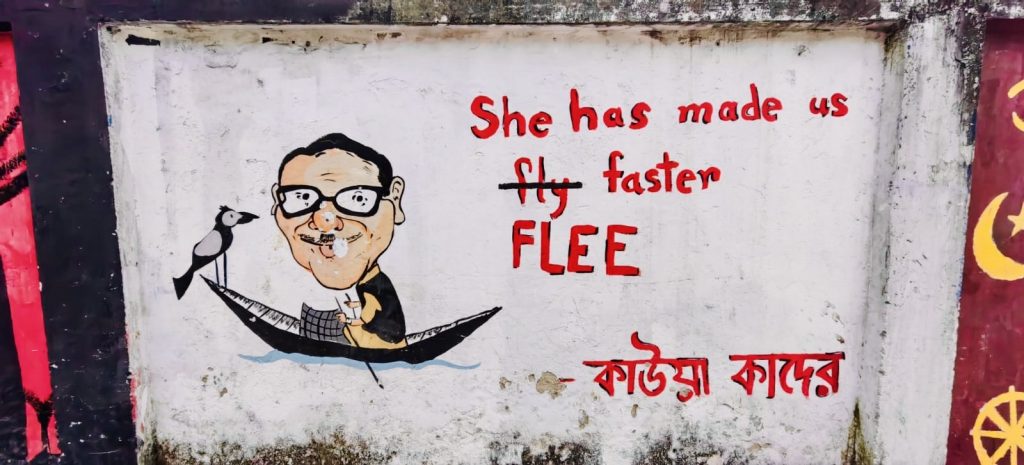 She has made us
fly faster
FLEE
- কাউয়া কাদের